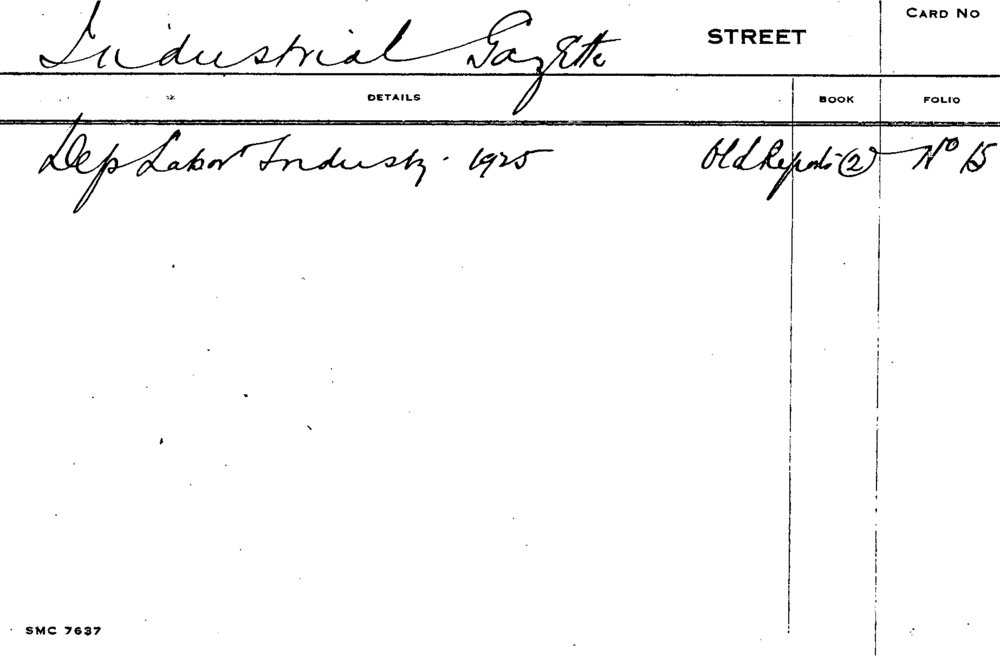 Industrial Gazette STREET CARD NO
DETAILS BOOK FOLIO
Dep Labor Industry. 1925 Old Reports (2) No 15
SMC 7637